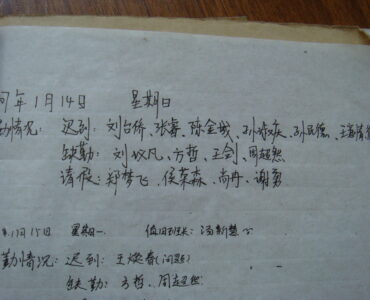 同年1月14日 星期日
勤情况: 迟到: 刘台桥、张睿、陈金城、孙 、孙 德、王海
缺勤: 刘议凡、方哲、王剑、周超然
请假: 郑梦飞、侯荣森、尚冉、谢勇
年1月15日 星期一. 值日班长: 汤斯慧
勤情况: 迟到: 王焕春(问题)
缺勤: 方哲、周超然